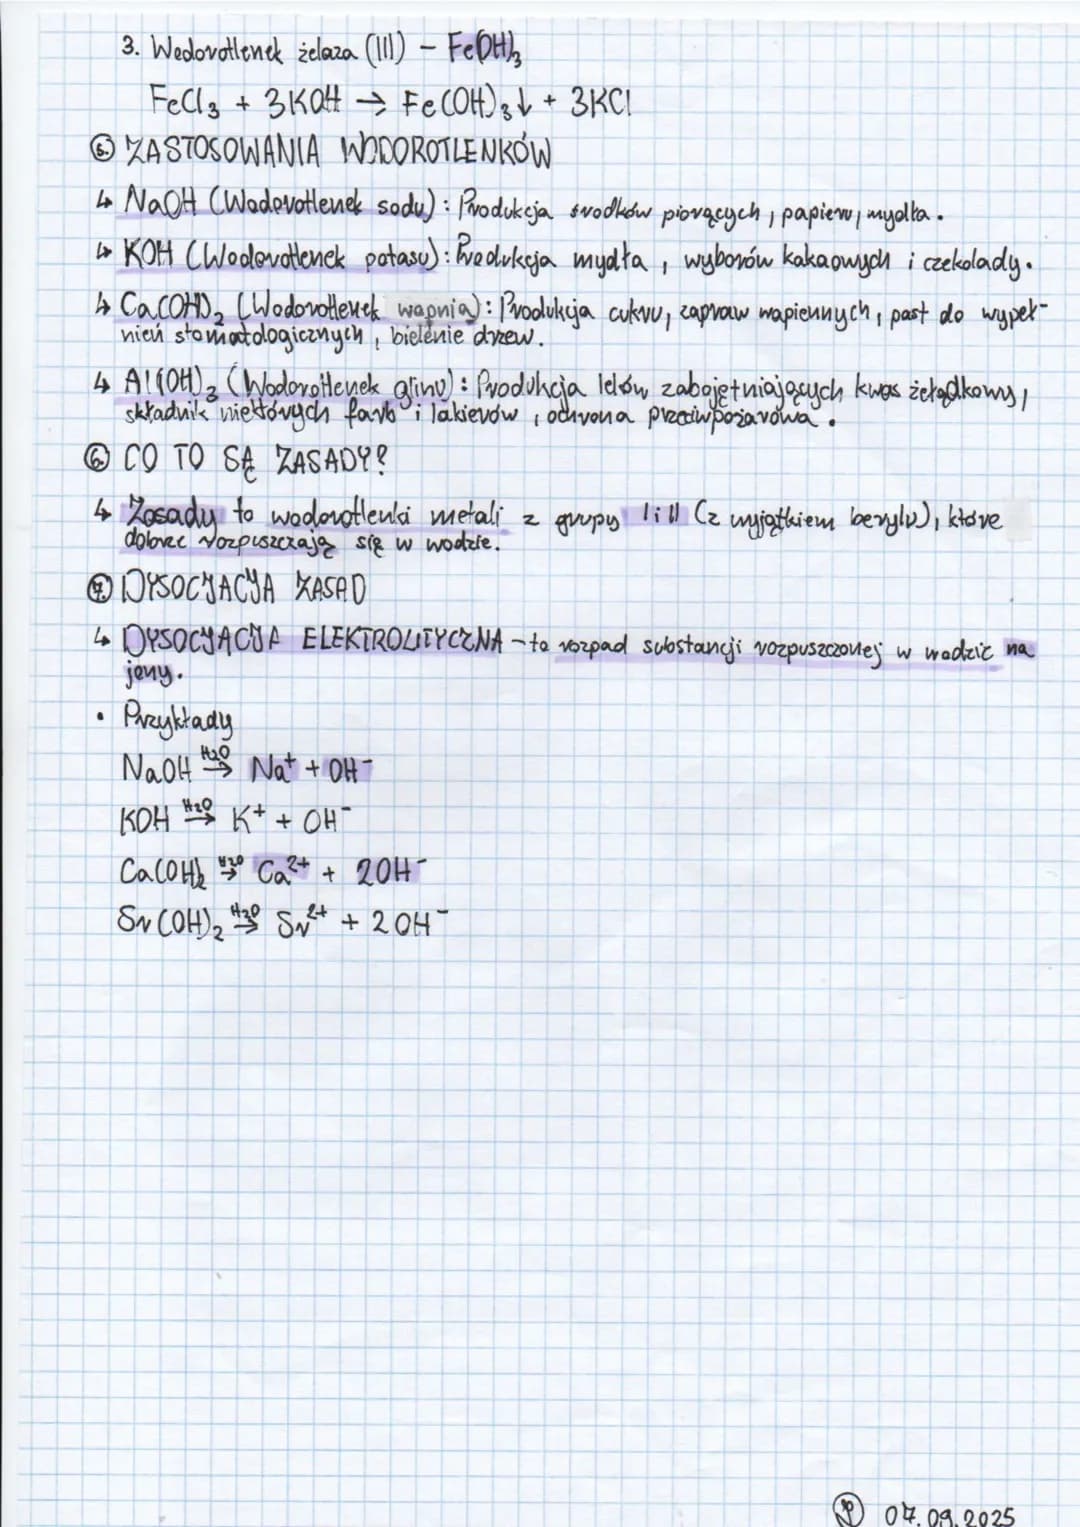 3. Wodorotlenek żelaza (III) – Fe(OH)₃
FeCl₃ + 3KOH → Fe(OH)₃↓ + 3KCl
5. ZASTOSOWANIA WODOROTLENKÓW
↳ NaOH (Wodorotlenek sodu): Produkcja środków piorących, papieru, mydła.
↳ KOH (Wodorotlenek potasu): Produkcja mydła, wyborów kakaowych i czekolady.
↳ Ca(OH)₂ (Wodorotlenek wapnia): Produkcja cukru, zapraw wapiennych, past do wypeł-
nień stomatologicznych, bielenie drzew.
↳ Al(OH)₃ (Wodorotlenek glinu): Produkcja leków zabojętniających kwas żołądkowy,
składnik niektórych farb i lakierów, ochrona przeciwpożarowa.
6. CO TO SĄ ZASADY?
↳ Zasady to wodorotlenki metali z grupy I i II (z wyjątkiem berylu), które
dobrze rozpuszczają się w wodzie.
7. DYSOCJACJA ZASAD
↳ DYSOCJACJA ELEKTROLITYCZNA – to rozpad substancji rozpuszczonej w wodzie na
jony.
• Przykłady
NaOH →(H₂O) Na⁺ + OH⁻
KOH →(H₂O) K⁺ + OH⁻
Ca(OH)₂ →(H₂O) Ca²⁺ + 2OH⁻
Sr(OH)₂ →(H₂O) Sr²⁺ + 2OH⁻
07.09.2025